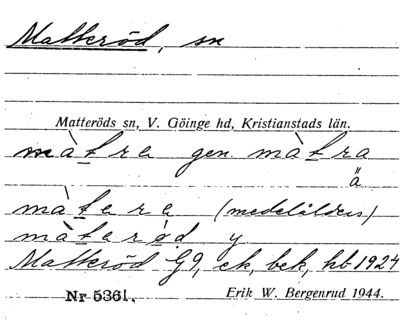 Matteröd, sn
Matteröds sn, V. Göinge hd, Kristianstads län.
màtra gen. màtra
ä
màtara (medelålders)
màtarød y
Matteröd G9, ek, bek, kb 1924
Nr 5361.
Erik W. Bergenrud 1944.